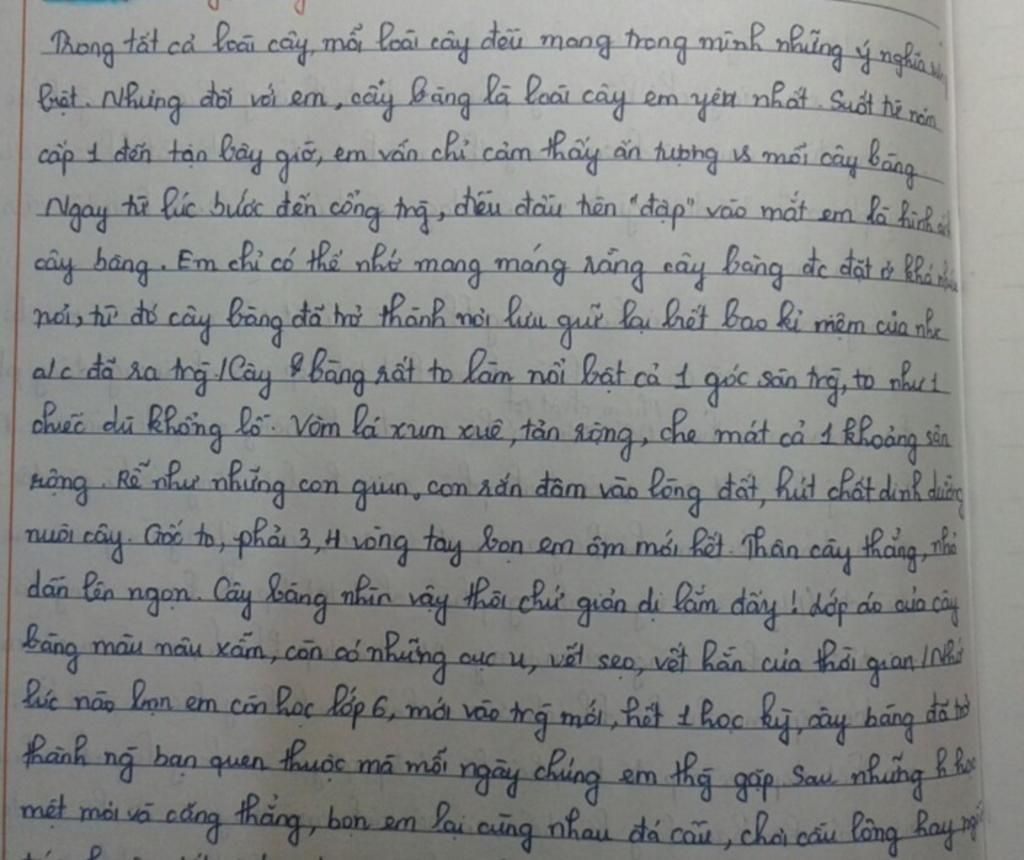 Trong tất cả loài cây, mỗi loài cây đều mang trong mình những ý nghĩa
biệt. Nhưng đối với em, cây bàng là loài cây em yêu nhất. Suốt từ năm
cấp 1 đến tận bây giờ, em vẫn chỉ cảm thấy ấn tượng vs mỗi cây bàng
Ngay từ lúc bước đến cổng trg, điều đầu tiên "đập" vào mắt em là hình
cây bàng. Em chỉ có thể nhớ mang máng rằng cây bàng đc đặt ở khá
nơi, từ đó cây bàng đã trở thành nơi lưu giữ lại hết bao kỉ niệm của
a/c đã ra trg./Cây bàng rất to làm nổi bật cả 1 góc sân trg, to như 1
chiếc dù khổng lồ. Vòm lá xum xuê, tán rộng, che mát cả 1 khoảng sân
rộng. Rễ như những con giun, con rắn đâm vào lòng đất, hút chất dinh dưỡng
nuôi cây. Gốc to, phải 3, 4 vòng tay bọn em ôm mới hết. Thân cây thẳng, nhỏ
dần lên ngọn. Cây bàng nhìn vậy thôi chứ giản dị lắm đấy! Lớp áo của cây
bàng màu nâu xẫm, còn có những cục u, vết sẹo, vết hằn của thời gian./Nhớ
lúc nào bọn em còn học lớp 6, mới vào trg mới, hết 1 học kỳ, cây bàng đã trở
thành ng bạn quen thuộc mà mỗi ngày chúng em thg gặp. Sau những
mệt mỏi và căng thẳng, bọn em lại cùng nhau đá cầu, chơi cầu lông hay